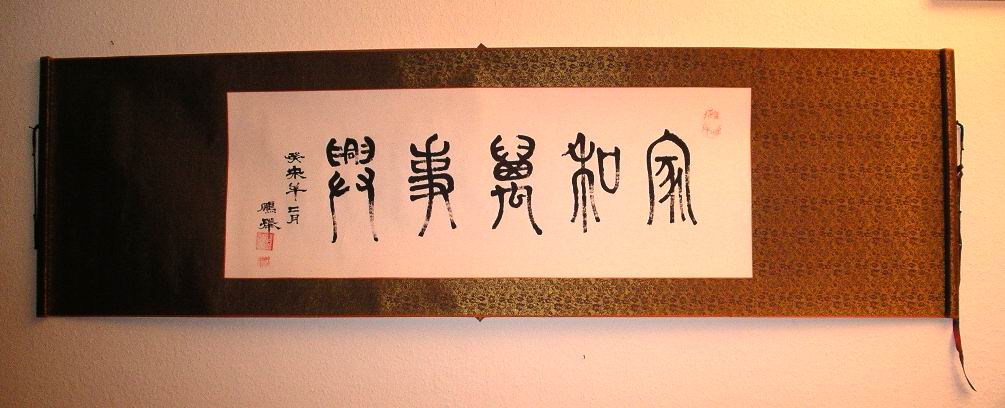 家和萬事興
癸未年二月